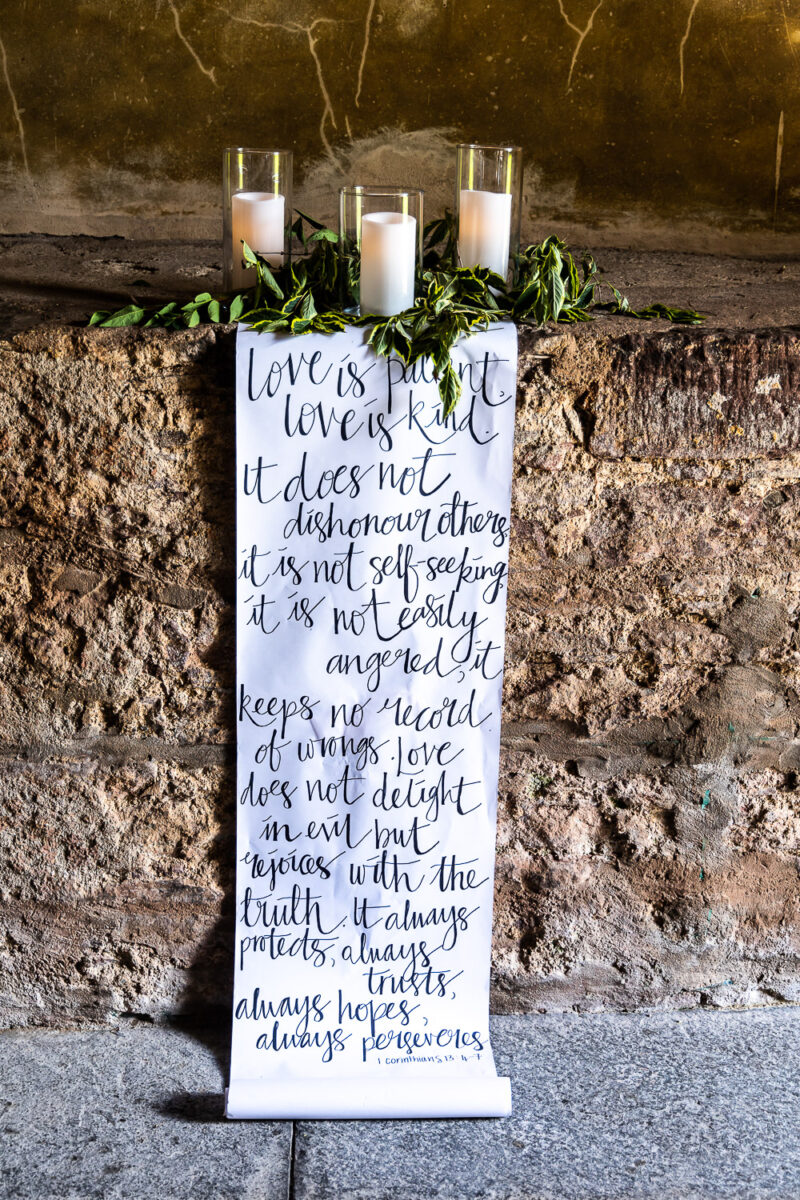 Love is patient,
love is kind.
It does not
dishonour others,
it is not self-seeking,
it is not easily
angered, it
keeps no record
of wrongs. Love
does not delight
in evil but
rejoices with the
truth. It always
protects, always
trusts,
always hopes,
always perseveres
1 corinthians 13 4-7